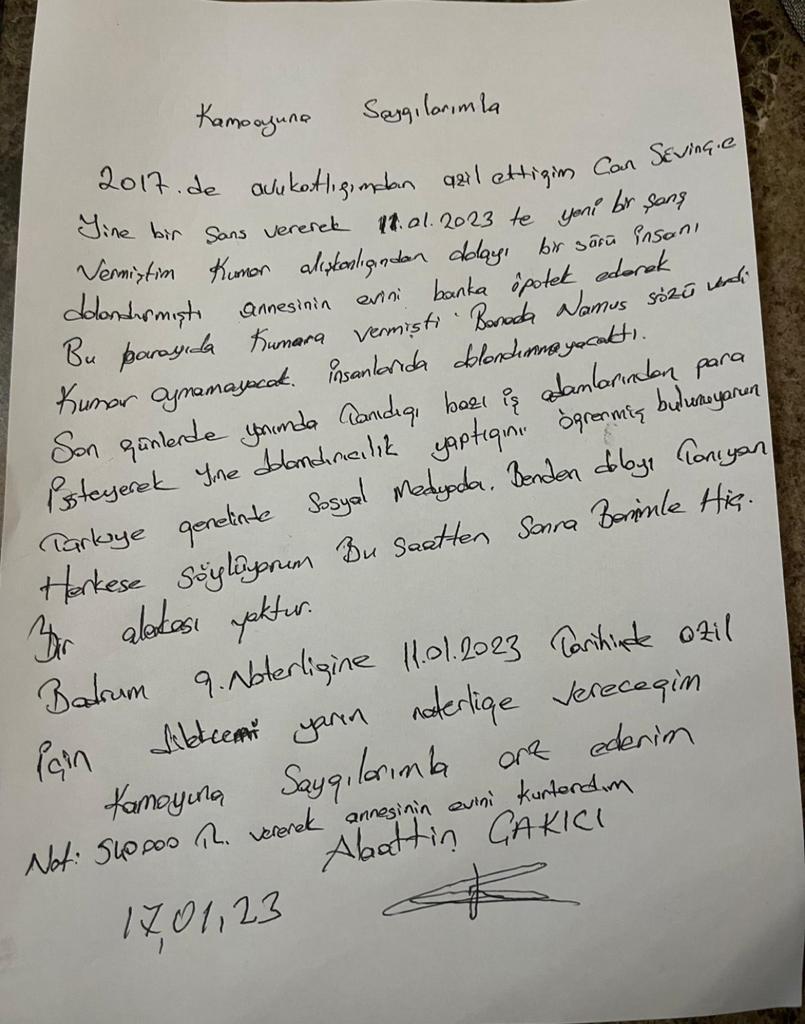 Kamooyuna Saygılarımla
2017.de avukatlığımdan azil ettiğim Can SEVİNÇ.e
Yine bir Şans vererek 11.01.2023 te yeni bir şans
Vermiştim Kumar alışkanlığından dolayı bir sürü insanı
dolandırmıştı annesinin evini banka ipotek ederek
Bu parayıda Kumara vermişti. Banada Namus sözü verdi
Kumar oynamayacak. insanlarıda dolandırmayacaktı.
Son günlerde yanımda Tanıdığı bazı iş adamlarından para
İsteyerek Yine dolandırıcılık yaptığını öğrenmiş bulunuyorum
Türkiye genelinde Sosyal Medyada. Benden dolayı Tanıyan
Herkese Söylüyorum Bu Saatten Sonra Benimle Hiç.
Bir alakası yoktur.
Bodrum 9.Noterligine 11.01.2023 Tarihinde azil
için dilekcemi yarın noterliğe vereceğim
Kamoyuna Saygılarımla arz ederim
Not: 540000 TL. vererek annesinin evini kurtardım
Alaattin ÇAKICI
17,01,23